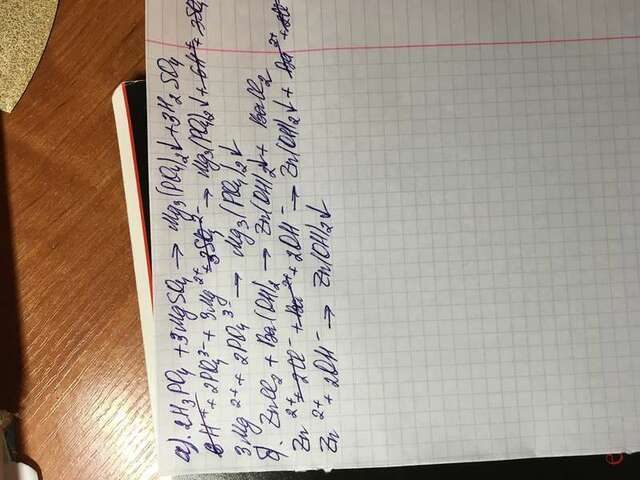 а). 2H₃PO₄ + 3MgSO₄ → Mg₃(PO₄)₂↓ + 3H₂SO₄
6H⁺ + 2PO₄³⁻ + 3Mg²⁺ + 3SO₄²⁻ → Mg₃(PO₄)₂↓ + 6H⁺ + 3SO₄
3Mg²⁺ + 2PO₄³⁻ → Mg₃(PO₄)₂↓
б). ZnCl₂ + Ba(OH)₂ → Zn(OH)₂↓ + BaCl₂
Zn²⁺ + 2Cl⁻ + Ba²⁺ + 2OH⁻ → Zn(OH)₂↓ + Ba²⁺ + 2Cl
Zn²⁺ + 2OH⁻ → Zn(OH)₂↓